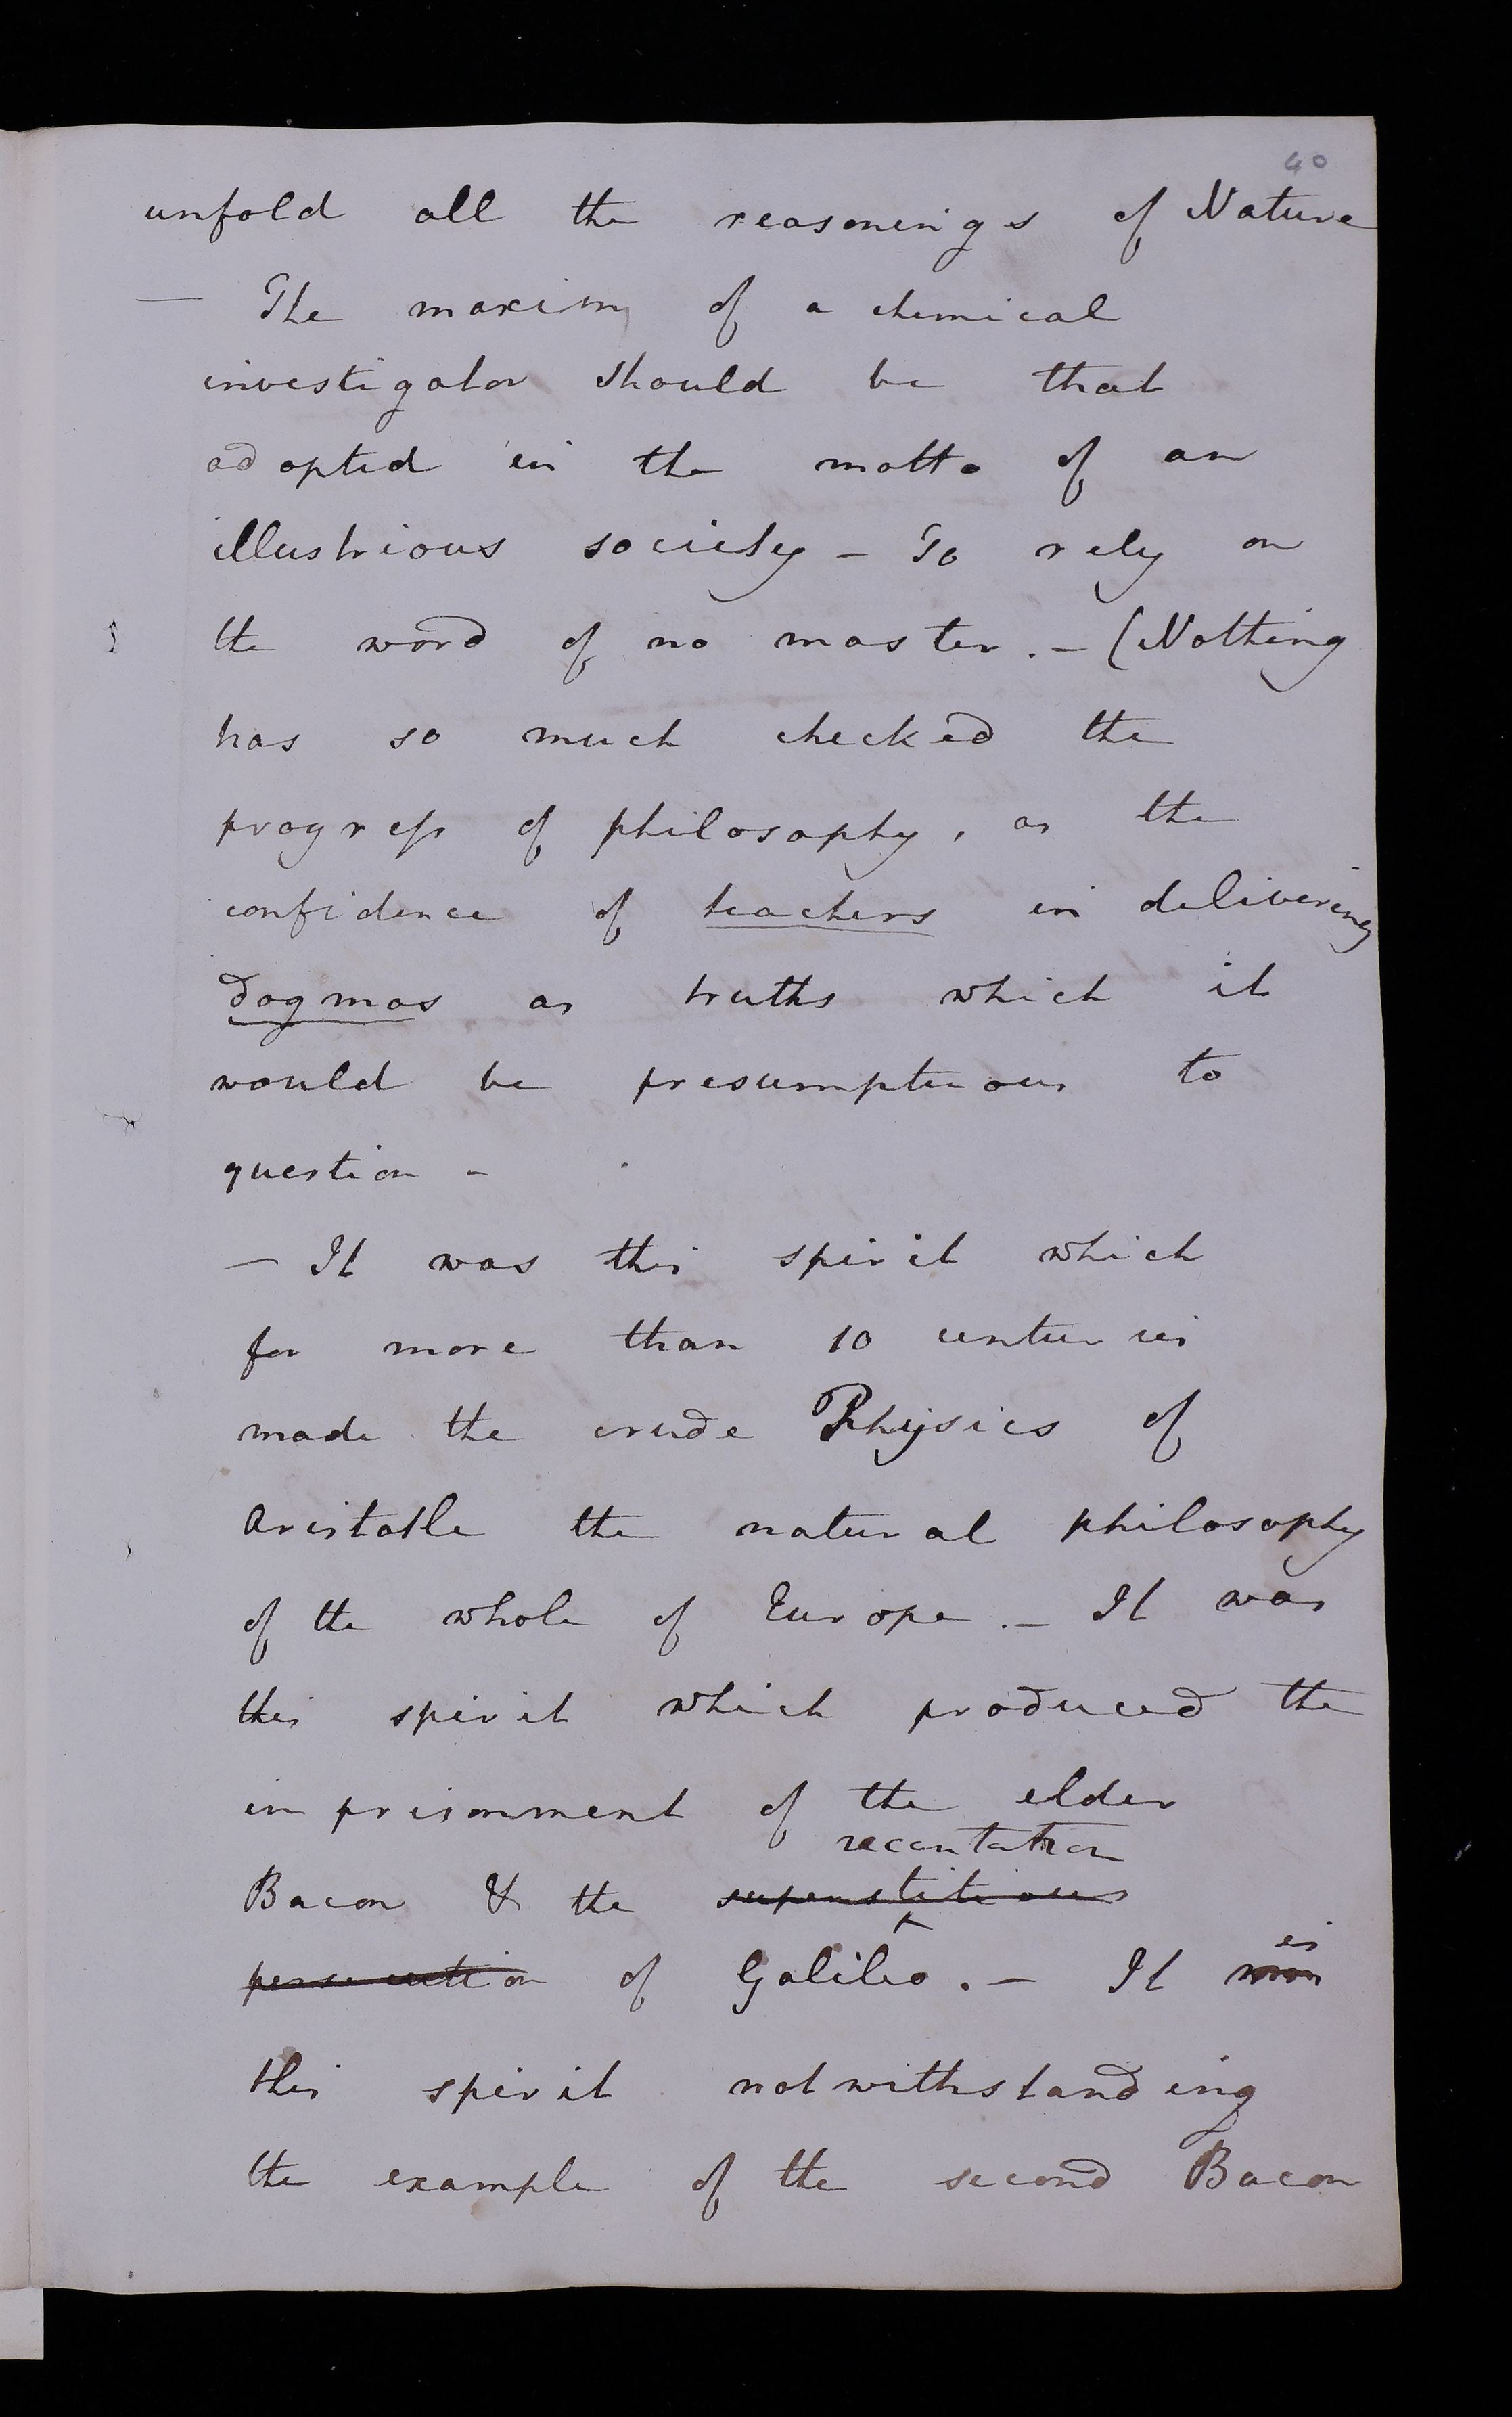 40
unfold all the reasonings of Nature
— The maxim of a chemical
investigator should be that
adopted in the motto of an
illustrious society – To rely on
the word of no master. – (Nothing
has so much checked the
progress of philosophy, as the
confidence of teachers in delivering
dogmas as truths which it
would be presumptuous to
question –
— It was this spirit which
for more than 10 centuries
made the crude Physics of
Aristotle the natural philosophy
of the whole of Europe. – It was
this spirit which produced the
inprisonment of the elder
recantation
Bacon & the superstitious
persecution of Galileo. – It was
is
this spirit notwithstanding
the example of the second Bacon